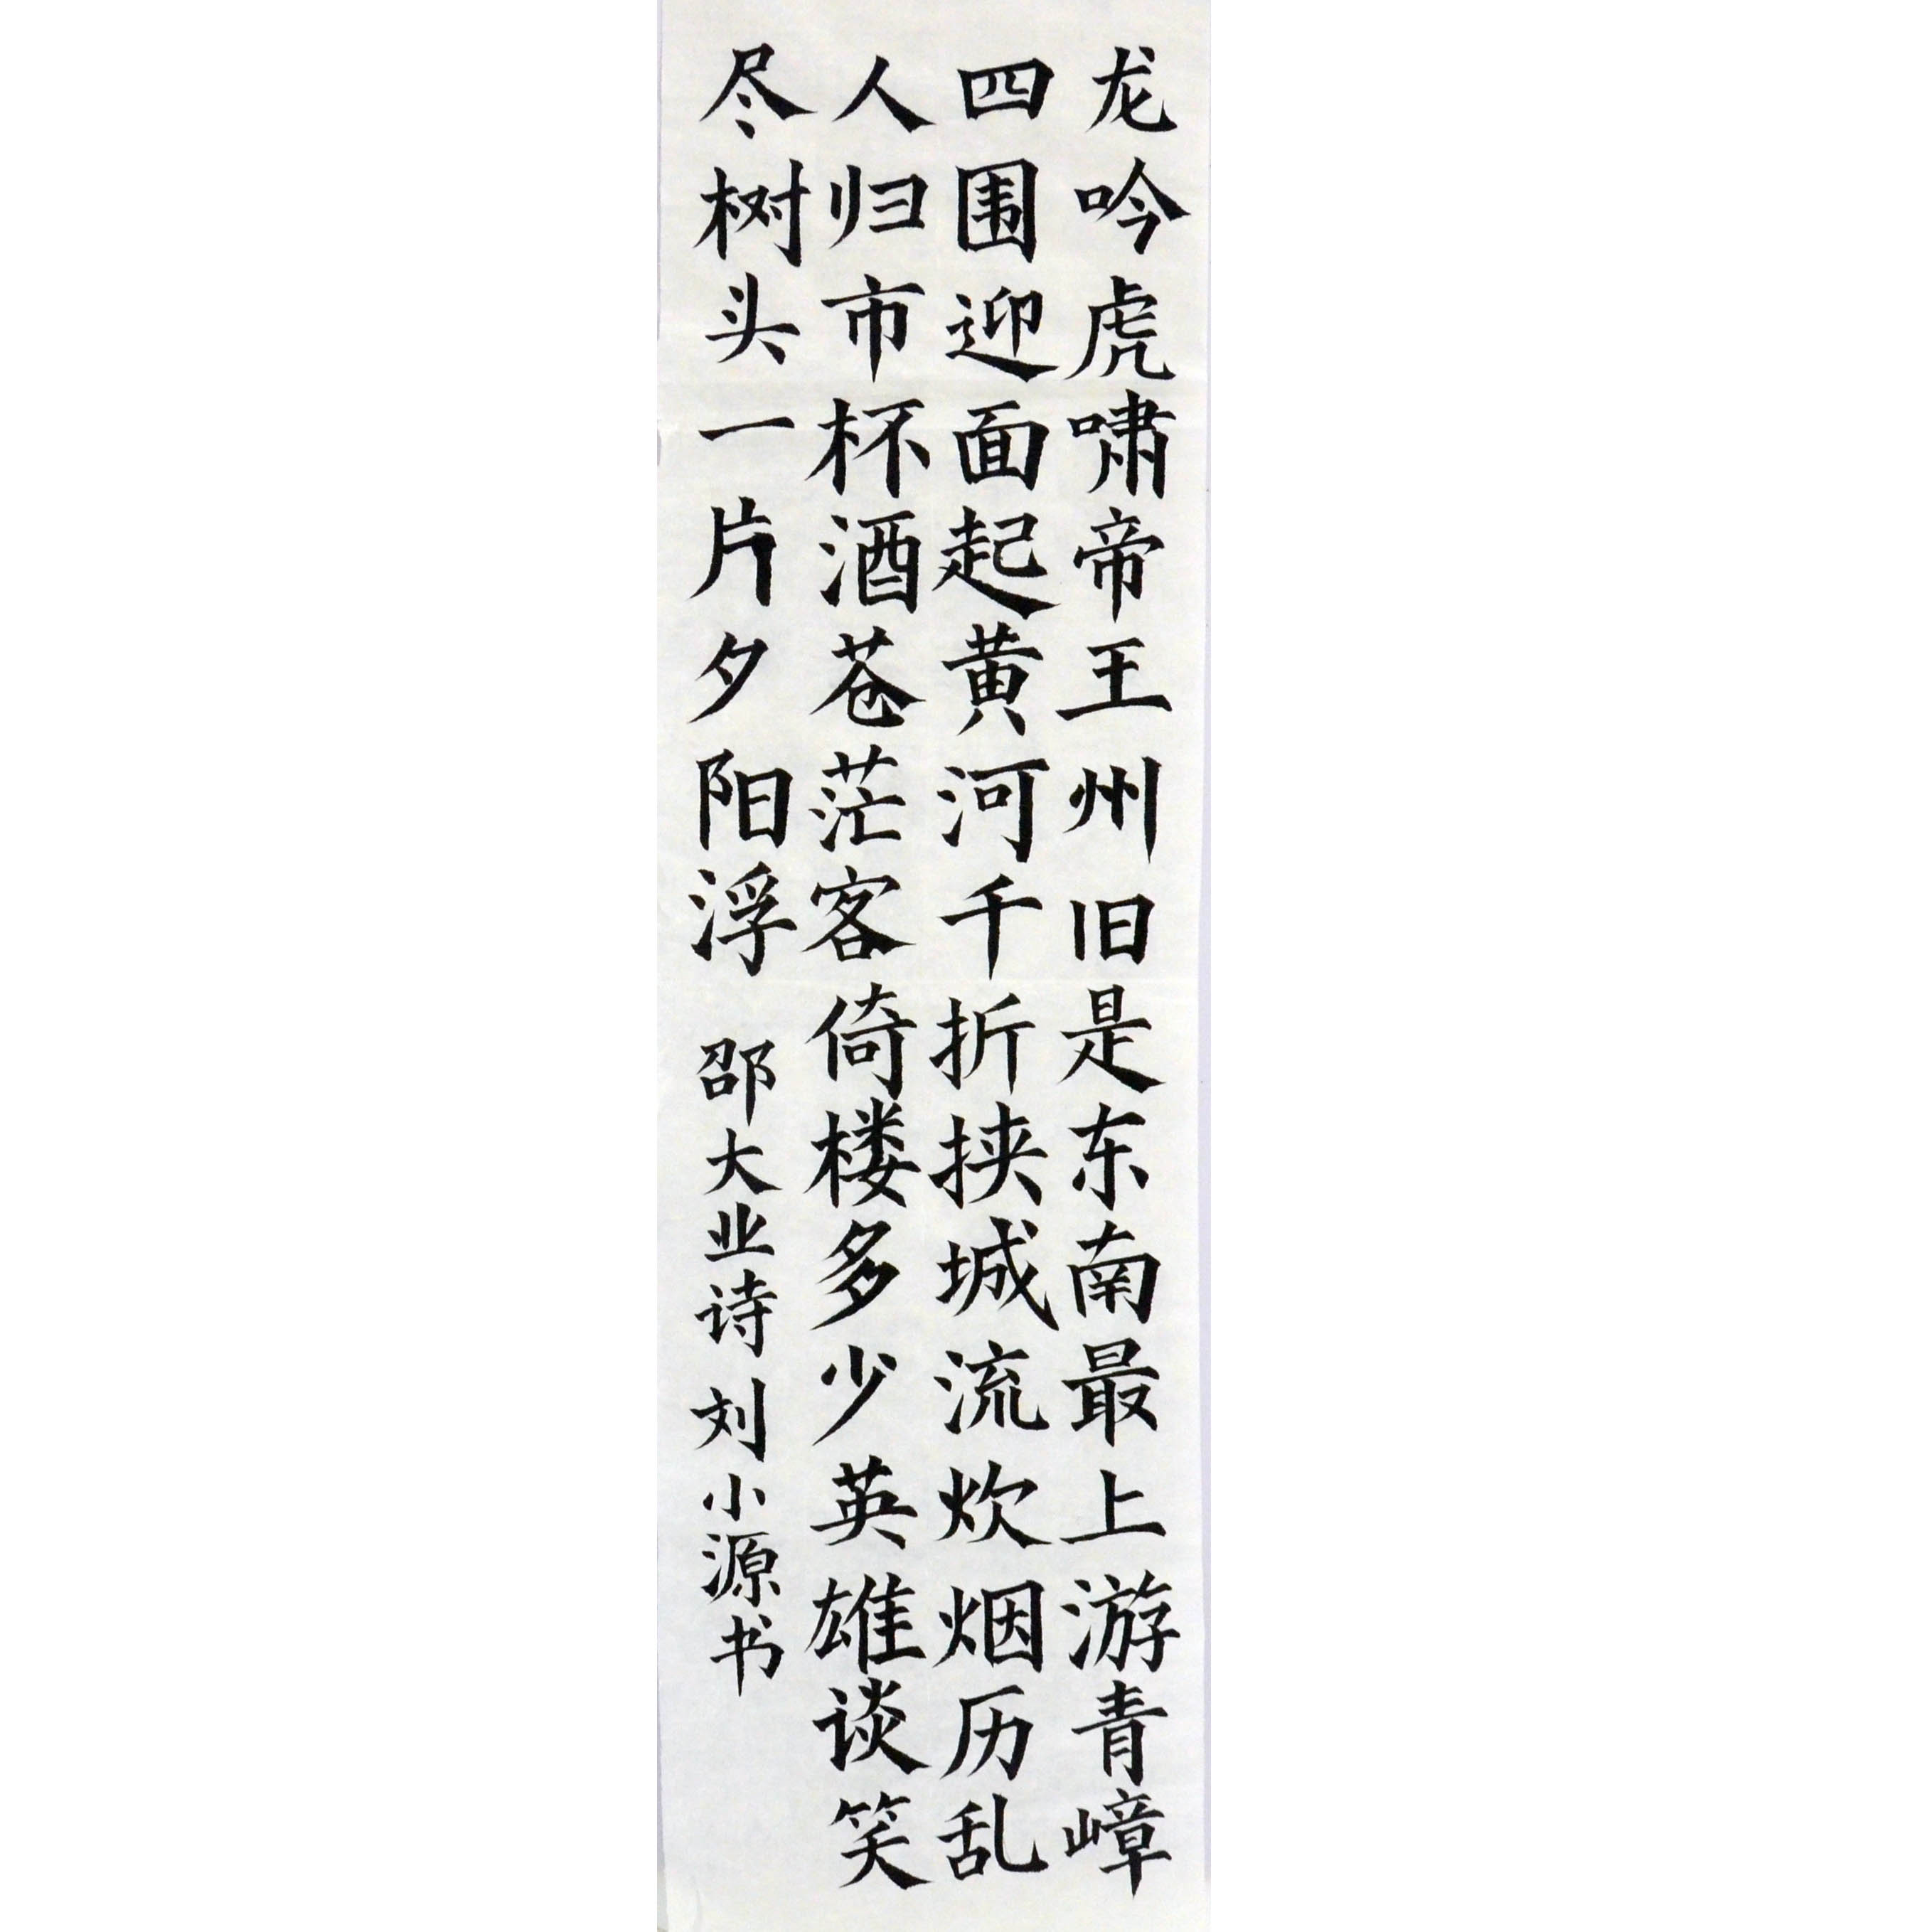 龙吟虎啸帝王州旧是东南最上游青嶂
四围迎面起黄河千折挟城流炊烟历乱
人归市杯酒苍茫客倚楼多少英雄谈笑
尽树头一片夕阳浮 邵大业诗刘小源书